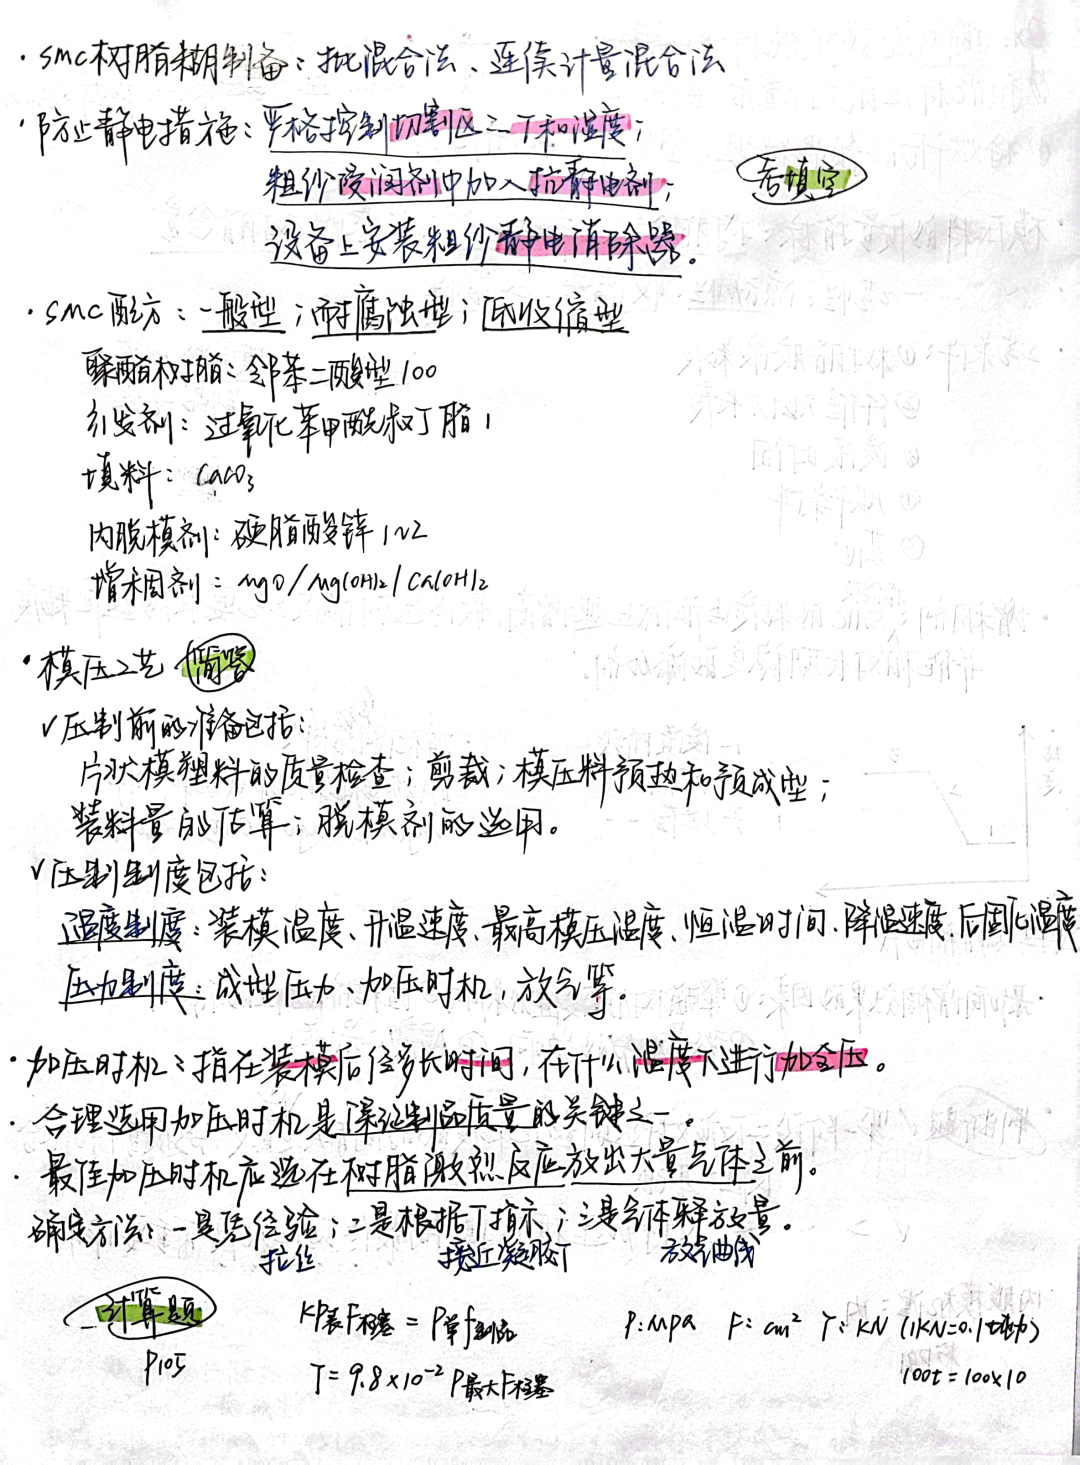 ·SMC树脂糊制备：批混合法、连续计量混合法
·防止静电措施：严格控制切割区之T和湿度；
粗纱浸润剂中加入抗静电剂；
考填空
设备上安装粗纱静电消除器。
·SMC配方：一般型；耐腐蚀型；低收缩型
聚酯树脂：邻苯二酸型100
引发剂：过氧化苯甲酰叔丁脂1
填料：CaCO₃
内脱模剂：硬脂酸锌1~2
增稠剂：MgO/Mg(OH)₂/Ca(OH)₂
·模压工艺 简答
√压制前的准备包括：
片状模塑料的质量检查；剪裁；模压料预热和预成型；
装料量的估算；脱模剂的选用。
√压制制度包括：
温度制度：装模温度、升温速度、最高模压温度、恒温时间、降温速度、后固化温度
压力制度：成型压力、加压时机，放气等。
·加压时机：指在装模后经多长时间，在什么温度下进行加全压。
·合理选用加压时机是保证制品质量的关键之一。
·最佳加压时机应选在树脂激烈反应放出大量气体之前。
确定方法：一是凭经验；二是根据T指示；三是气体释放量。
拉丝 接近凝胶T 放气曲线
计算题 KP表F柱塞=P单f制品 P：MPa F：cm² T：KN (1KN=0.1t)
P105 T=9.8×10⁻²P最大F柱塞 100t=100×10